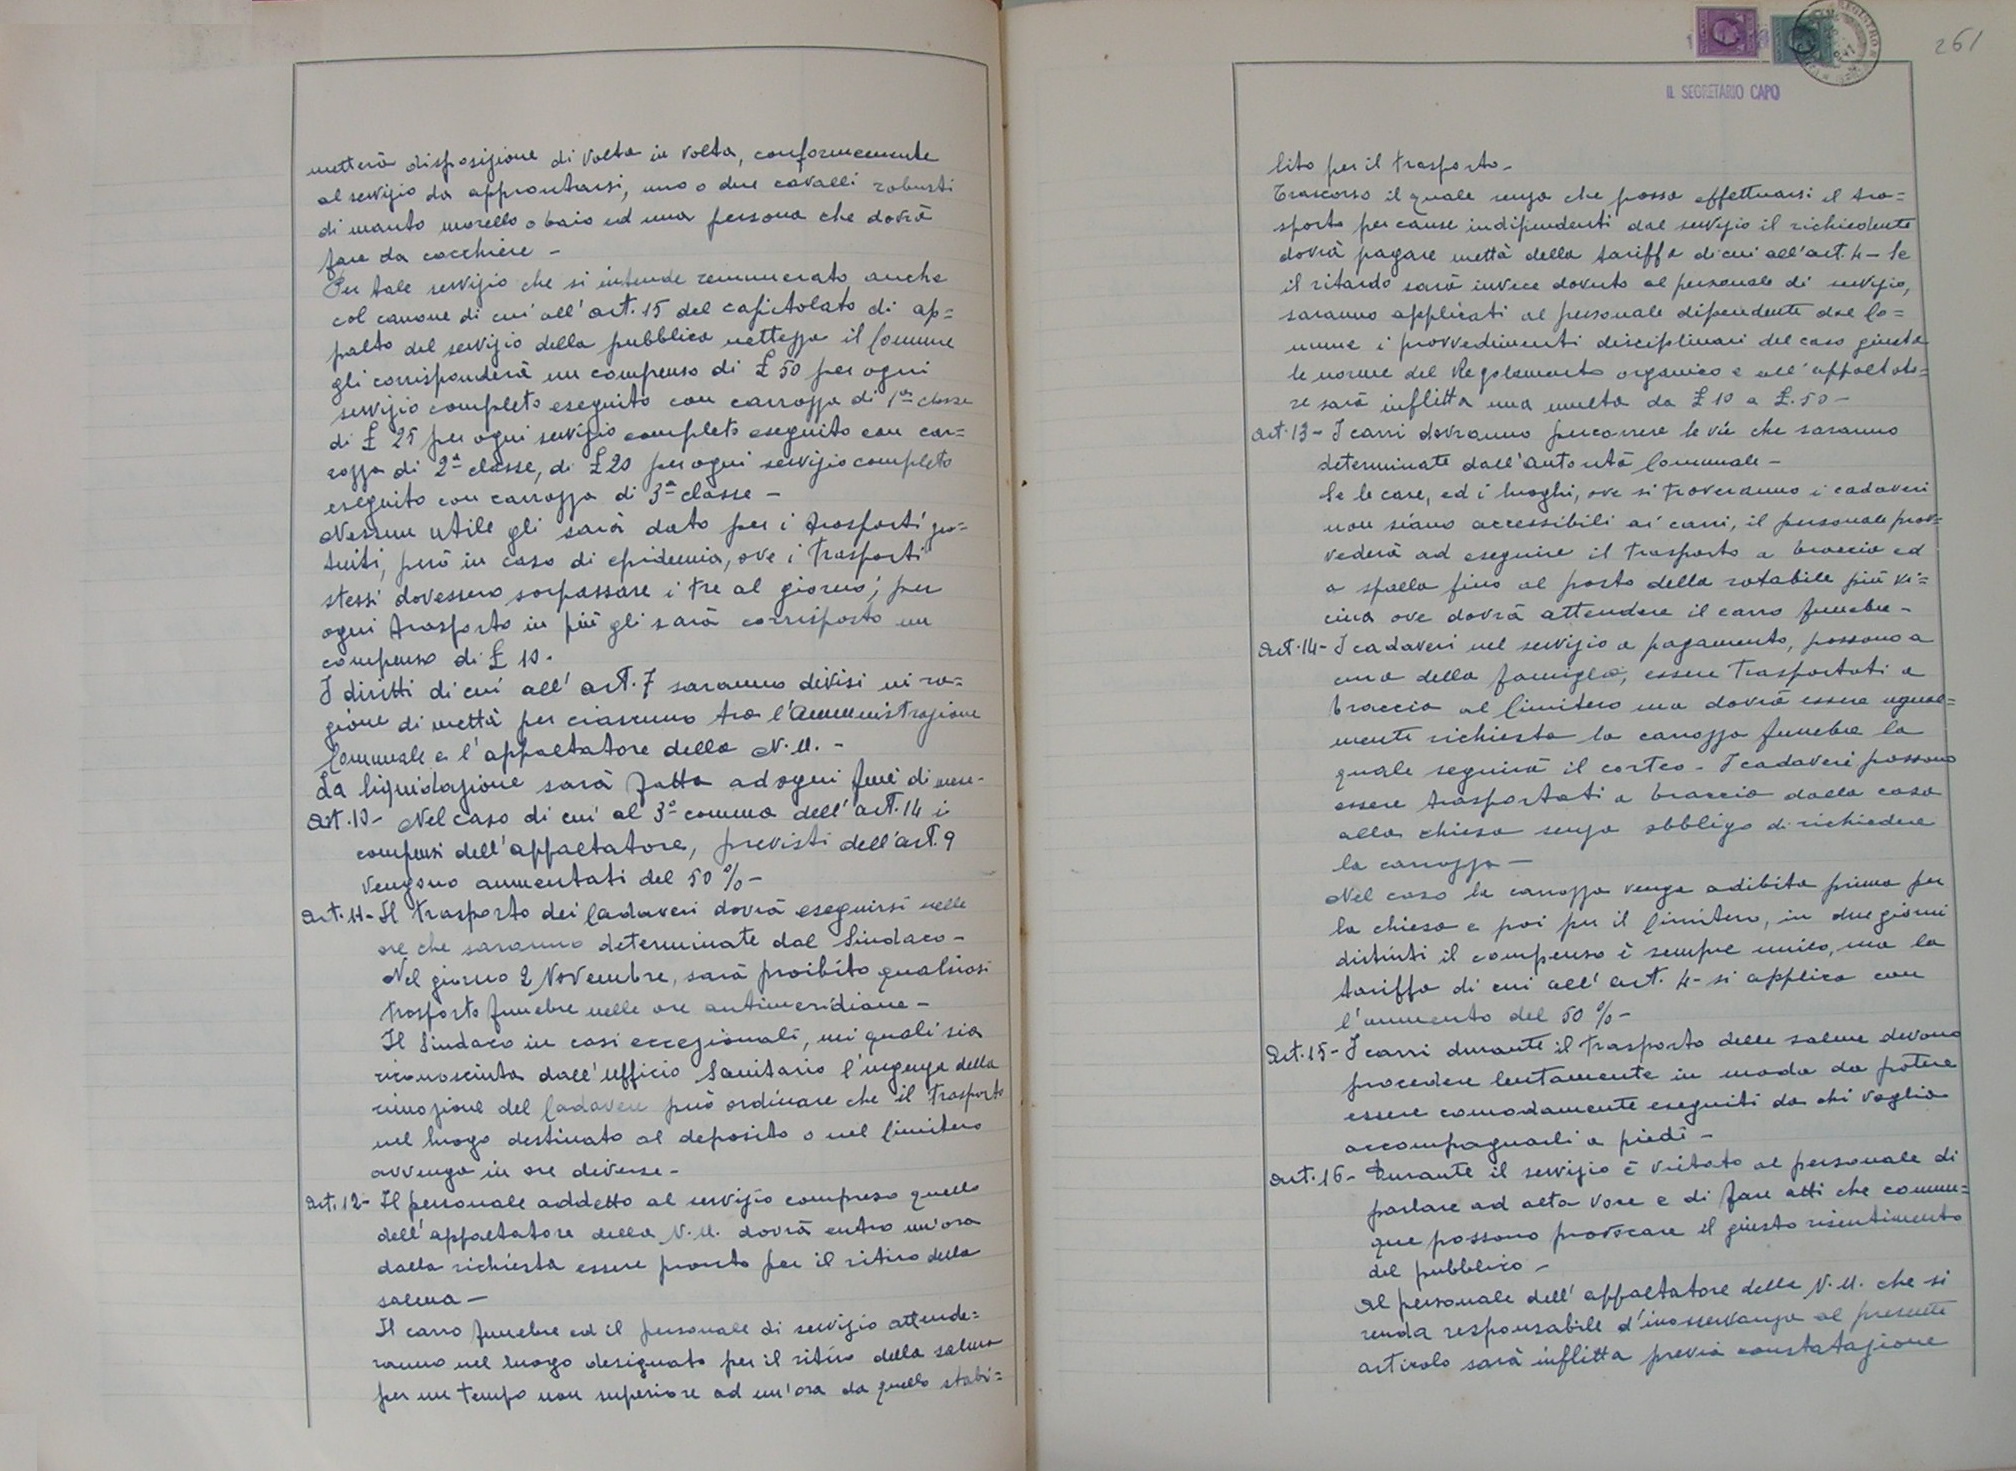 metterà disposizione di volta in volta, conformemente
al servizio da approntarsi, uno o due cavalli robusti
di manto morello o baio ed una persona che dovrà
fare da cocchiere -
Per tale servizio che si intende remunerato anche
col canone di cui all'art. 15 del capitolato di ap=
palto del servizio della pubblica nettezza il Comune
gli corrisponderà un compenso di £ 50 per ogni
servizio completo eseguito con carrozza di 1ª classe
di £ 25 per ogni servizio completo eseguito con car=
rozza di 2ª classe, di £ 20 per ogni servizio completo
eseguito con carrozza di 3ª classe -
Nessun utile gli sarà dato per i trasporti gra=
tuiti, però in caso di epidemia, ove i trasporti
stessi dovessero sorpassare i tre al giorno, per
ogni trasporto in più gli sarà corrisposto un
compenso di £ 10.
I diritti di cui all'art. 7 saranno divisi in ra=
gione di mettà per ciascuno tra l'Amministrazione
Comunale e l'appaltatore della N.U. -
La liquidazione sarà fatta ad ogni fine di mese -
Art. 10 - Nel caso di cui al 3° comma dell'art. 14 i
compensi dell'appaltatore, previsti dell'art. 9
vengono aumentati del 50 % -
Art. 11 - Il trasporto dei Cadaveri dovrà eseguirsi nelle
ore che saranno determinate dal Sindaco -
Nel giorno 2 Novembre, sarà proibito qualsiasi
trasporto funebre nelle ore antimeridiane -
Il Sindaco in casi eccezionali, nei quali sia
riconosciuta dall'ufficio Sanitario l'urgenza della
rimozione del Cadavere può ordinare che il trasporto
nel luogo destinato al deposito o nel Cimitero
avvenga in ore diverse -
Art. 12 - Il personale addetto al servizio compreso quello
dell'appaltatore della N.U. dovrà entro un'ora
dalla richiesta essere pronto per il ritiro della
salma -
Il carro funebre ed il personale di servizio attende=
ranno nel luogo designato per il ritiro della salma
per un tempo non superiore ad un'ora da quello stabi=
261
IL SEGRETARIO CAPO
lito per il trasporto -
Trascorso il quale senza che possa effettuarsi il tra=
sporto per cause indipendenti dal servizio il richiedente
dovrà pagare mettà della tariffa di cui all'art. 4 - Se
il ritardo sarà invece dovuto al personale di servizio,
saranno applicati al personale dipendente dal Co=
mune i provvedimenti disciplinari del caso giusta
le norme del Regolamento organico e all'appaltato=
re sarà inflitta una multa da £ 10 a £. 50 -
Art. 13 - I carri dovranno percorrere le vie che saranno
determinate dall'Autorità Comunale -
Se le case, ed i luoghi, ove si troveranno i cadaveri
non siano accessibili ai carri, il personale prov=
vederà ad eseguire il trasporto a braccia ed
a spalla fino al posto della rotabile più vi=
cina ove dovrà attendere il carro funebre -
Art. 14 - I cadaveri nel servizio a pagamento, possono a
cura della famiglia, essere trasportati a
braccia al Cimitero ma dovrà essere ugual=
mente richiesta la carrozza funebre la
quale seguirà il corteo - I cadaveri possono
essere trasportati a braccia dalla casa
alla chiesa senza obbligo di richiedere
la carrozza -
Nel caso la carrozza venga adibita prima per
la chiesa e poi per il Cimitero, in due giorni
distinti il compenso è sempre unico, ma la
tariffa di cui all'art. 4 - si applica con
l'aumento del 50 % -
Art. 15 - I carri durante il trasporto delle salme devono
procedere lentamente in modo da potere
essere comodamente eseguiti da chi voglia
accompagnarli a piedi -
Art. 16 - Durante il servizio è vietato al personale di
parlare ad alta voce e di fare atti che comun=
que possono provocare il giusto risentimento
del pubblico -
Al personale dell'appaltatore della N.U. che si
renda responsabile d'inosservanza al presente
articolo sarà inflitta previa constatazione